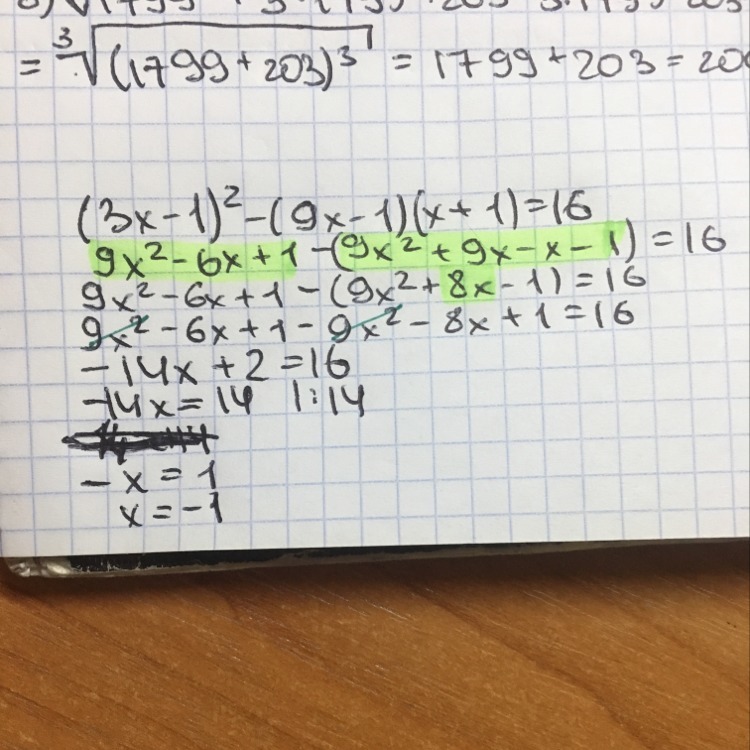 = ∛((1799+203)³) = 1799+203 = 200
(3x-1)² - (9x-1)(x+1) = 16
9x² - 6x + 1 - (9x² + 9x - x - 1) = 16
9x² - 6x + 1 - (9x² + 8x - 1) = 16
9x² - 6x + 1 - 9x² - 8x + 1 = 16
-14x + 2 = 16
-14x = 14 |:14
-x = 1
x = -1